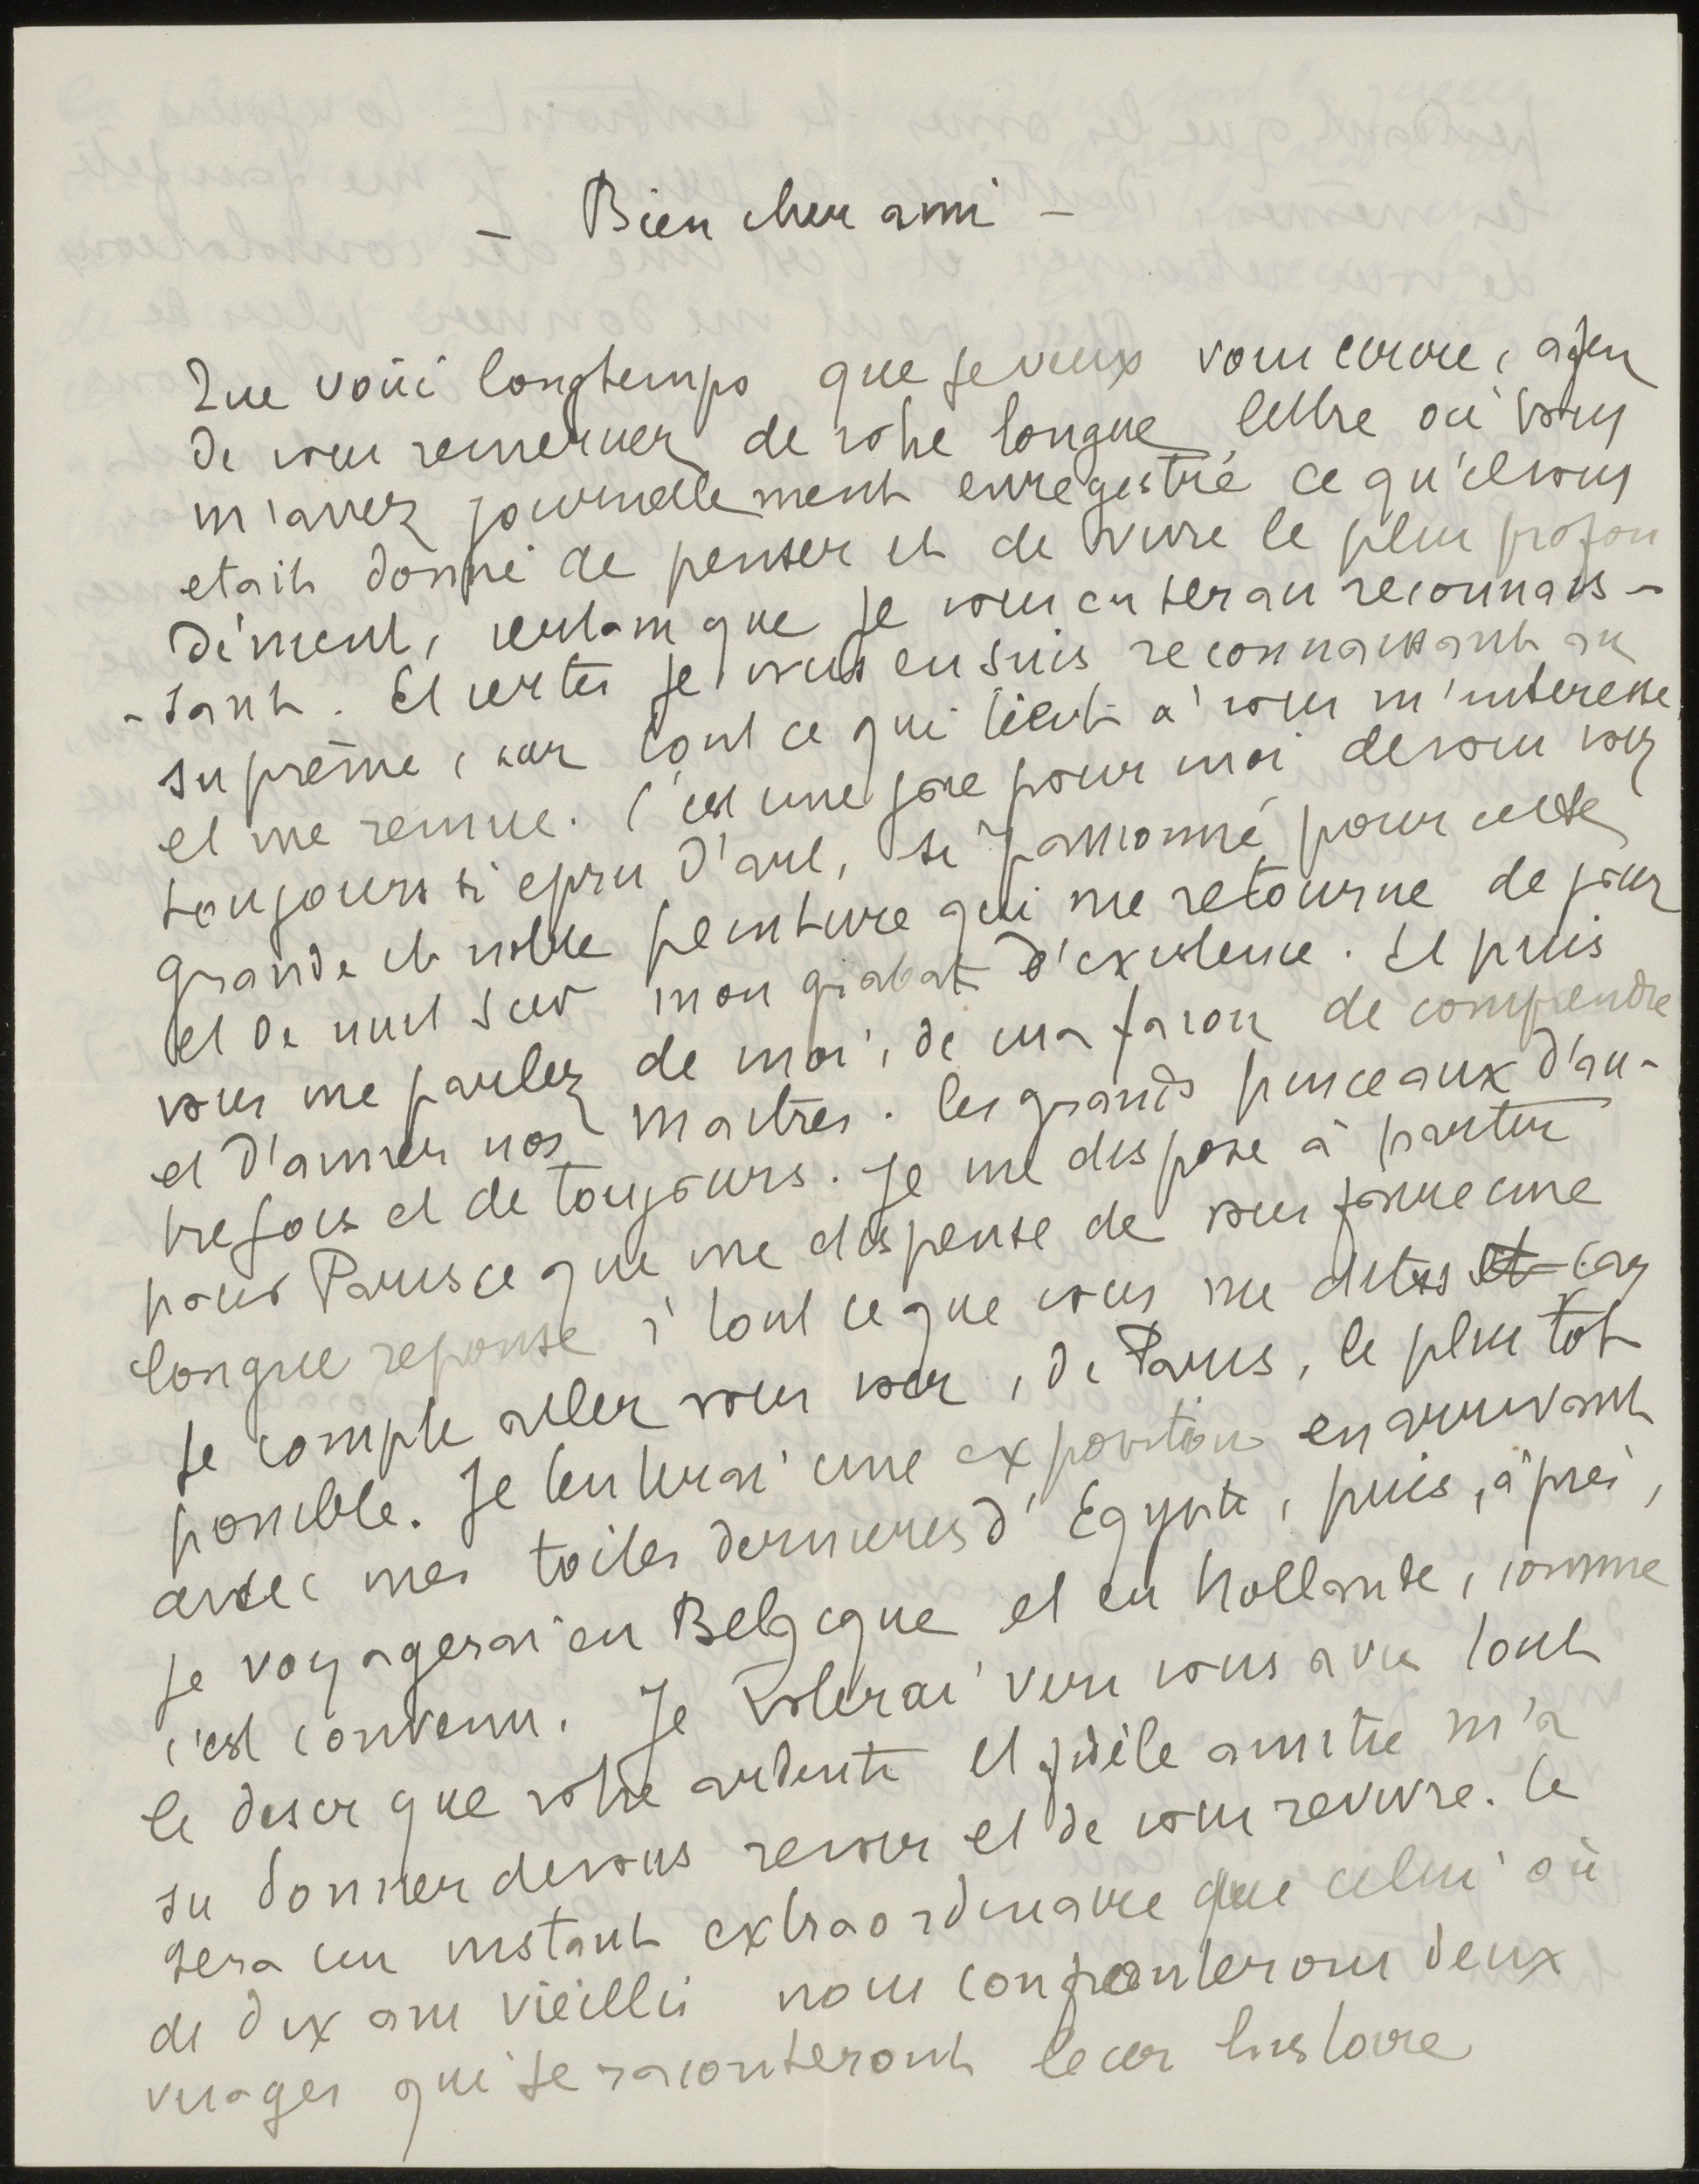 - Bien cher ami -
Que voici longtemps que je veux vous écrire, afin
de vous remercier de votre longue lettre où vous
m'avez journellement enregistré ce qu'il vous
etait donné de penser et de vivre le plus profon
dément, certain que je vous en serai reconnais-
-sant. Et certes je vous en suis reconnaissant au
suprême, car tout ce qui tient à vous m'interesse
et me remue. C'est une joie pour moi de vous voir
toujours si epris d'art, si passionné pour cette
grande et noble peinture qui me retourne de jour
et de nuit sur mon grabat d'existence. Et puis
vous me parlez de moi, de ma facon de comprendre
et d'aimer nos maitres. les grands pinceaux d'au-
trefois et de toujours. Je me dispose à partir
pour Paris ce que me dispense de vous faire une
longue reponse à tout ce que vous me dites et car
je compte aller vous voir, de Paris, le plus tôt
possible. Je tenterai une exposition en arrivant
avec mes toiles dernieres d'Egypte, puis, après,
je voyagerai en Belgique et en Hollande, comme
c'est convenu. Je volerai vers vous avec tout
le desir que votre ardente et fidèle amitie m'a
su donner de vous revoir et de vous revivre. Ce
sera un instant extraordinaire que celui où
de dix ans vieillis nous confronterons deux
visages qui se raconteront leur histoire